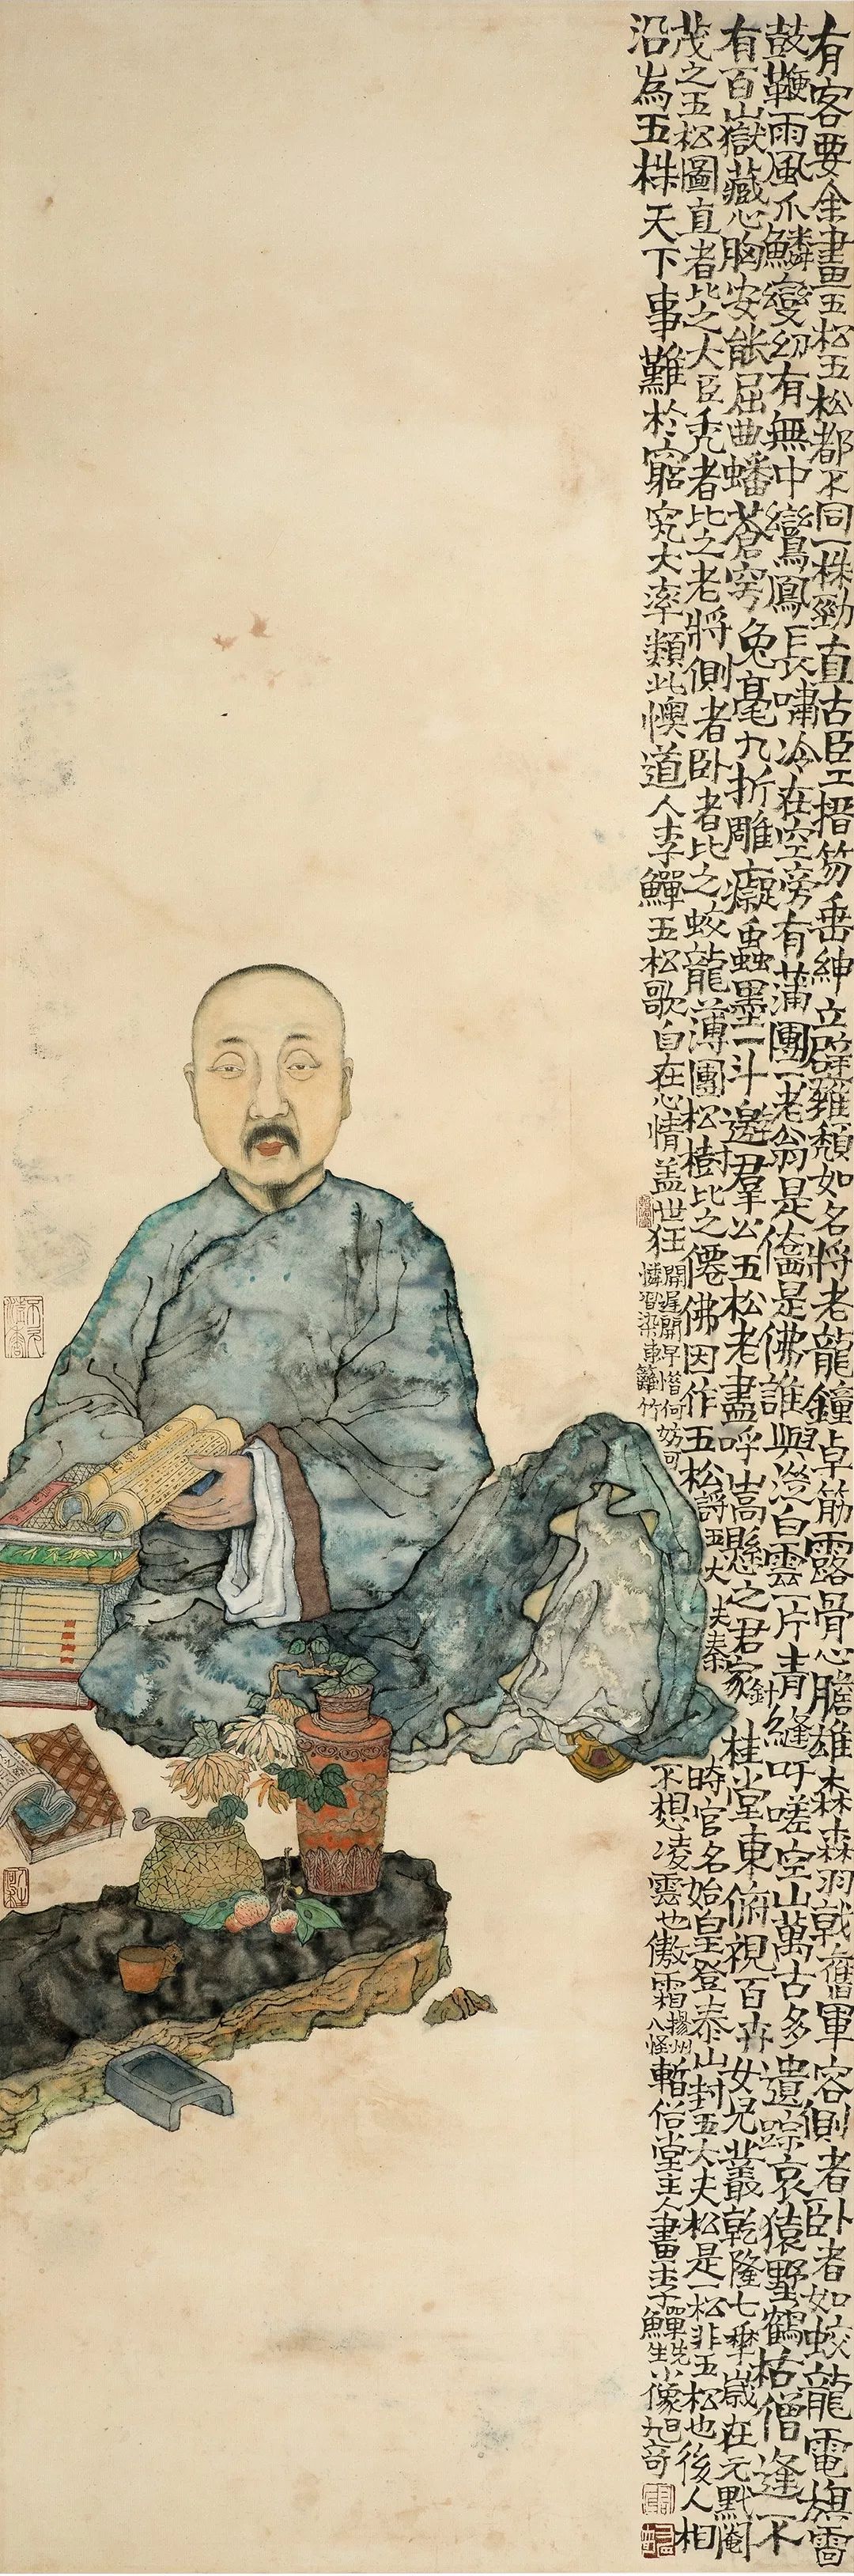 有客要余畫五松五松都不同一株勁直古臣工搢笏垂紳立辟雍頹如名將老龍鐘卓筋露骨心膽雄森森羽戟奮軍容側者臥者如蛟龍電旗雷
鼓鞭雨風爪鱗變幻有無中鸞鳳長嘯冷在空旁有蒲團一老翁是僊是佛誰與澄白雲一片青針縫吁嗟空山萬古多遺踪哀猿墅鶴枯僧逢不
有百山嶽藏心胸安能屈曲蟠蒼穹兔毫九折雕癡蟲墨一斗邀羣公五松老盡呼嵩懸之君家桂堂東俯視百卉女兄叢乾隆七年歲在元黓閹
茂之五松圖直者比之大臣禿者比之老將側者臥者比之蛟龍薄團松樹比之僊佛因作五松謌五大夫秦時官名始皇登泰山封五大夫松是一松非五松也後人相
沿為五株天下事難於窮究大率類此懊道人李鱓五松歌自在心情蓋世狂開遲開早惜何妨可憐習染東籬竹不想凌雲也傲霜揚州八怪暫俗堂主人畫李鱓先生小像旭奇